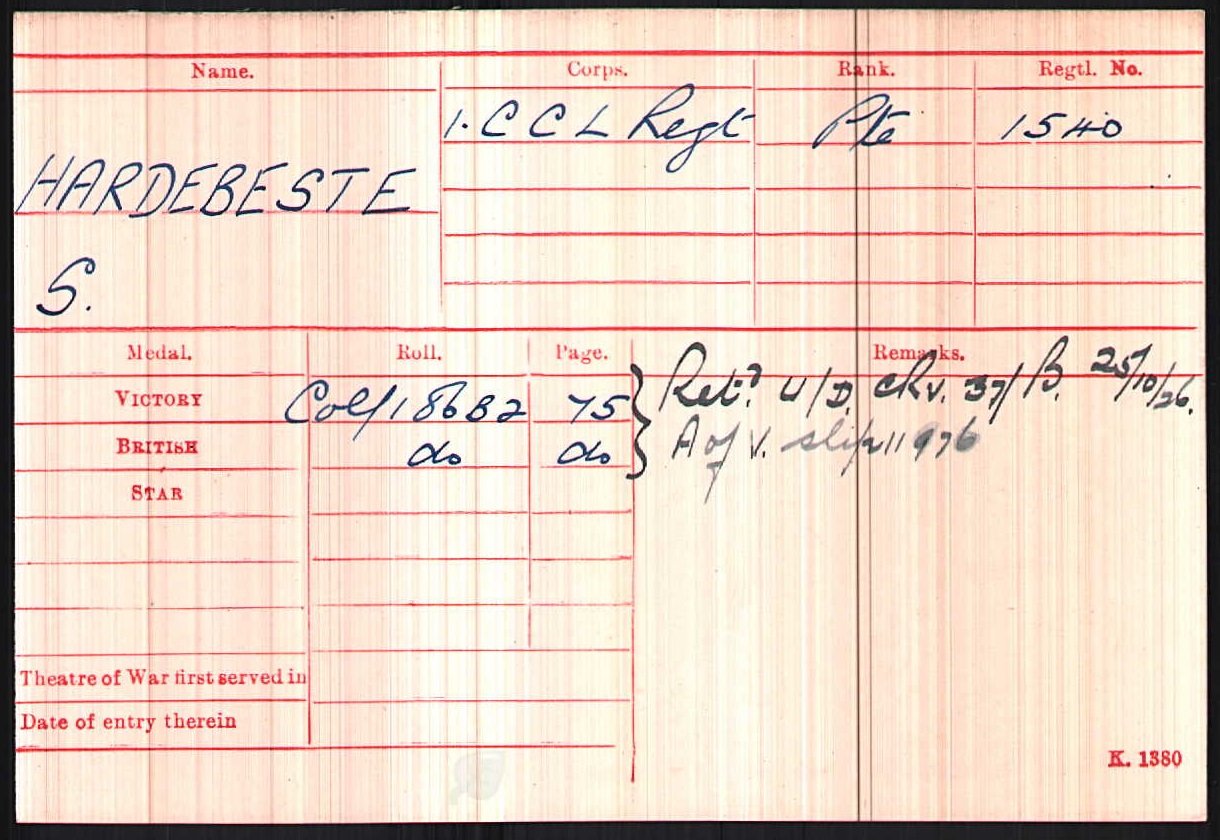 Name. Corps. Rank. Regtl. No.
1. C C L Regt Pte 1540
HARDEBESTE
S.
Medal. Roll. Page. Remarks.
VICTORY Col/186B2 75 Ret? U/D. CRV. 37/B. 25/10/26.
BRITISH do do A of V. slip 11976
STAR
Theatre of War first served in
Date of entry therein
K. 1380